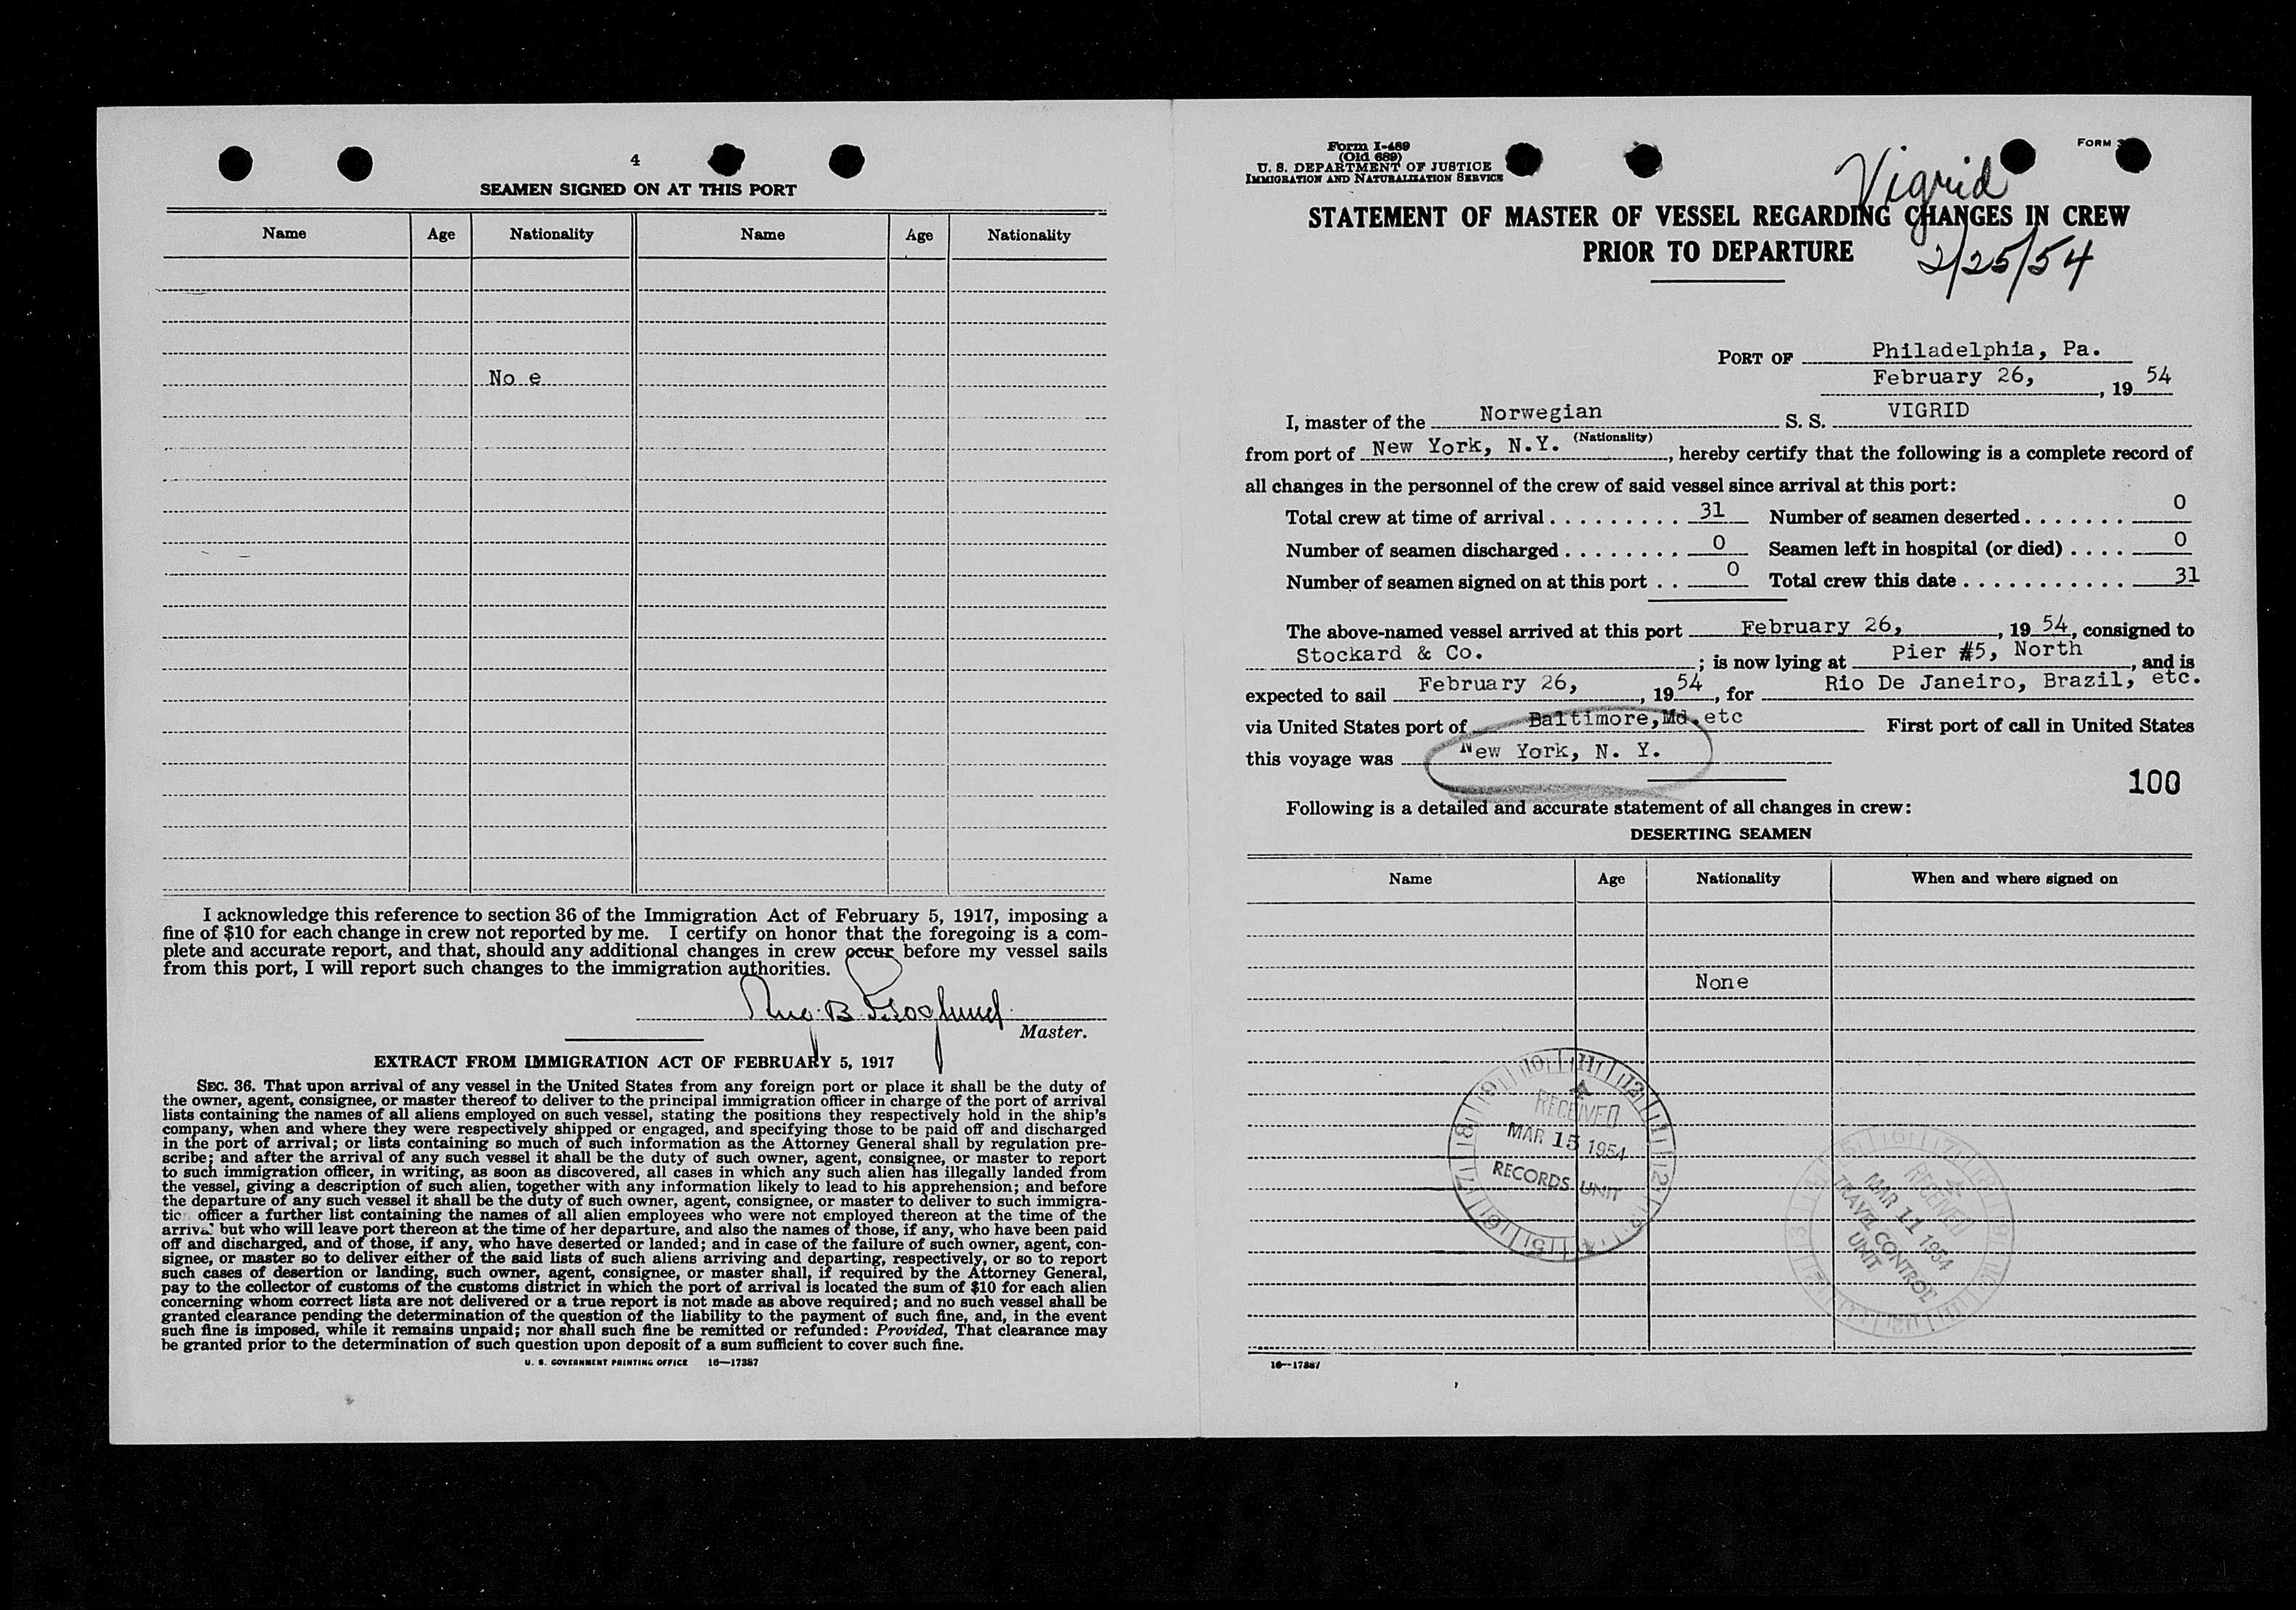 4
SEAMEN SIGNED ON AT THIS PORT
Name Age Nationality Name Age Nationality
No e
I acknowledge this reference to section 36 of the Immigration Act of February 5, 1917, imposing a
fine of $10 for each change in crew not reported by me. I certify on honor that the foregoing is a com-
plete and accurate report, and that, should any additional changes in crew occur before my vessel sails
from this port, I will report such changes to the immigration authorities.
Master.
EXTRACT FROM IMMIGRATION ACT OF FEBRUARY 5, 1917
SEC. 36. That upon arrival of any vessel in the United States from any foreign port or place it shall be the duty of
the owner, agent, consignee, or master thereof to deliver to the principal immigration officer in charge of the port of arrival
lists containing the names of all aliens employed on such vessel, stating the positions they respectively hold in the ship's
company, when and where they were respectively shipped or engaged, and specifying those to be paid off and discharged
in the port of arrival; or lists containing so much of such information as the Attorney General shall by regulation pre-
scribe; and after the arrival of any such vessel it shall be the duty of such owner, agent, consignee, or master to report
to such immigration officer, in writing, as soon as discovered, all cases in which any such alien has illegally landed from
the vessel, giving a description of such alien, together with any information likely to lead to his apprehension; and before
the departure of any such vessel it shall be the duty of such owner, agent, consignee, or master to deliver to such immigra-
tic officer a further list containing the names of all alien employees who were not employed thereon at the time of the
arrival but who will leave port thereon at the time of her departure, and also the names of those, if any, who have been paid
off and discharged, and of those, if any, who have deserted or landed; and in case of the failure of such owner, agent, con-
signee, or master so to deliver either of the said lists of such aliens arriving and departing, respectively, or so to report
such cases of desertion or landing, such owner, agent, consignee, or master shall, if required by the Attorney General,
pay to the collector of customs of the customs district in which the port of arrival is located the sum of $10 for each alien
concerning whom correct lists are not delivered or a true report is not made as above required; and no such vessel shall be
granted clearance pending the determination of the question of the liability to the payment of such fine, and, in the event
such fine is imposed, while it remains unpaid; nor shall such fine be remitted or refunded: Provided, That clearance may
be granted prior to the determination of such question upon deposit of a sum sufficient to cover such fine.
U. S. GOVERNMENT PRINTING OFFICE 16—17387
Form I-489
(Old 689)
U. S. DEPARTMENT OF JUSTICE
IMMIGRATION AND NATURALIZATION SERVICE
FORM
Vigrid
STATEMENT OF MASTER OF VESSEL REGARDING CHANGES IN CREW
PRIOR TO DEPARTURE
2/25/54
PORT OF Philadelphia, Pa.
February 26, , 19 54
I, master of the Norwegian S. S. VIGRID
(Nationality)
from port of New York, N.Y. , hereby certify that the following is a complete record of
all changes in the personnel of the crew of said vessel since arrival at this port:
Total crew at time of arrival . . . . . . . . . 31 Number of seamen deserted . . . . . . . 0
Number of seamen discharged . . . . . . . . 0 Seamen left in hospital (or died) . . . . 0
Number of seamen signed on at this port . . 0 Total crew this date . . . . . . . . . . . 31
The above-named vessel arrived at this port February 26, , 19 54, consigned to
Stockard & Co. ; is now lying at Pier #5, North , and is
expected to sail February 26, , 19 54, for Rio De Janeiro, Brazil, etc.
via United States port of Baltimore,Md.etc First port of call in United States
this voyage was New York, N. Y.
100
Following is a detailed and accurate statement of all changes in crew:
DESERTING SEAMEN
Name Age Nationality When and where signed on
None
RECEIVED
MAR 15 1954
RECORDS UNIT
RECEIVED
MAR 11 1954
TRAVEL CONTROL
UNIT
16—17387